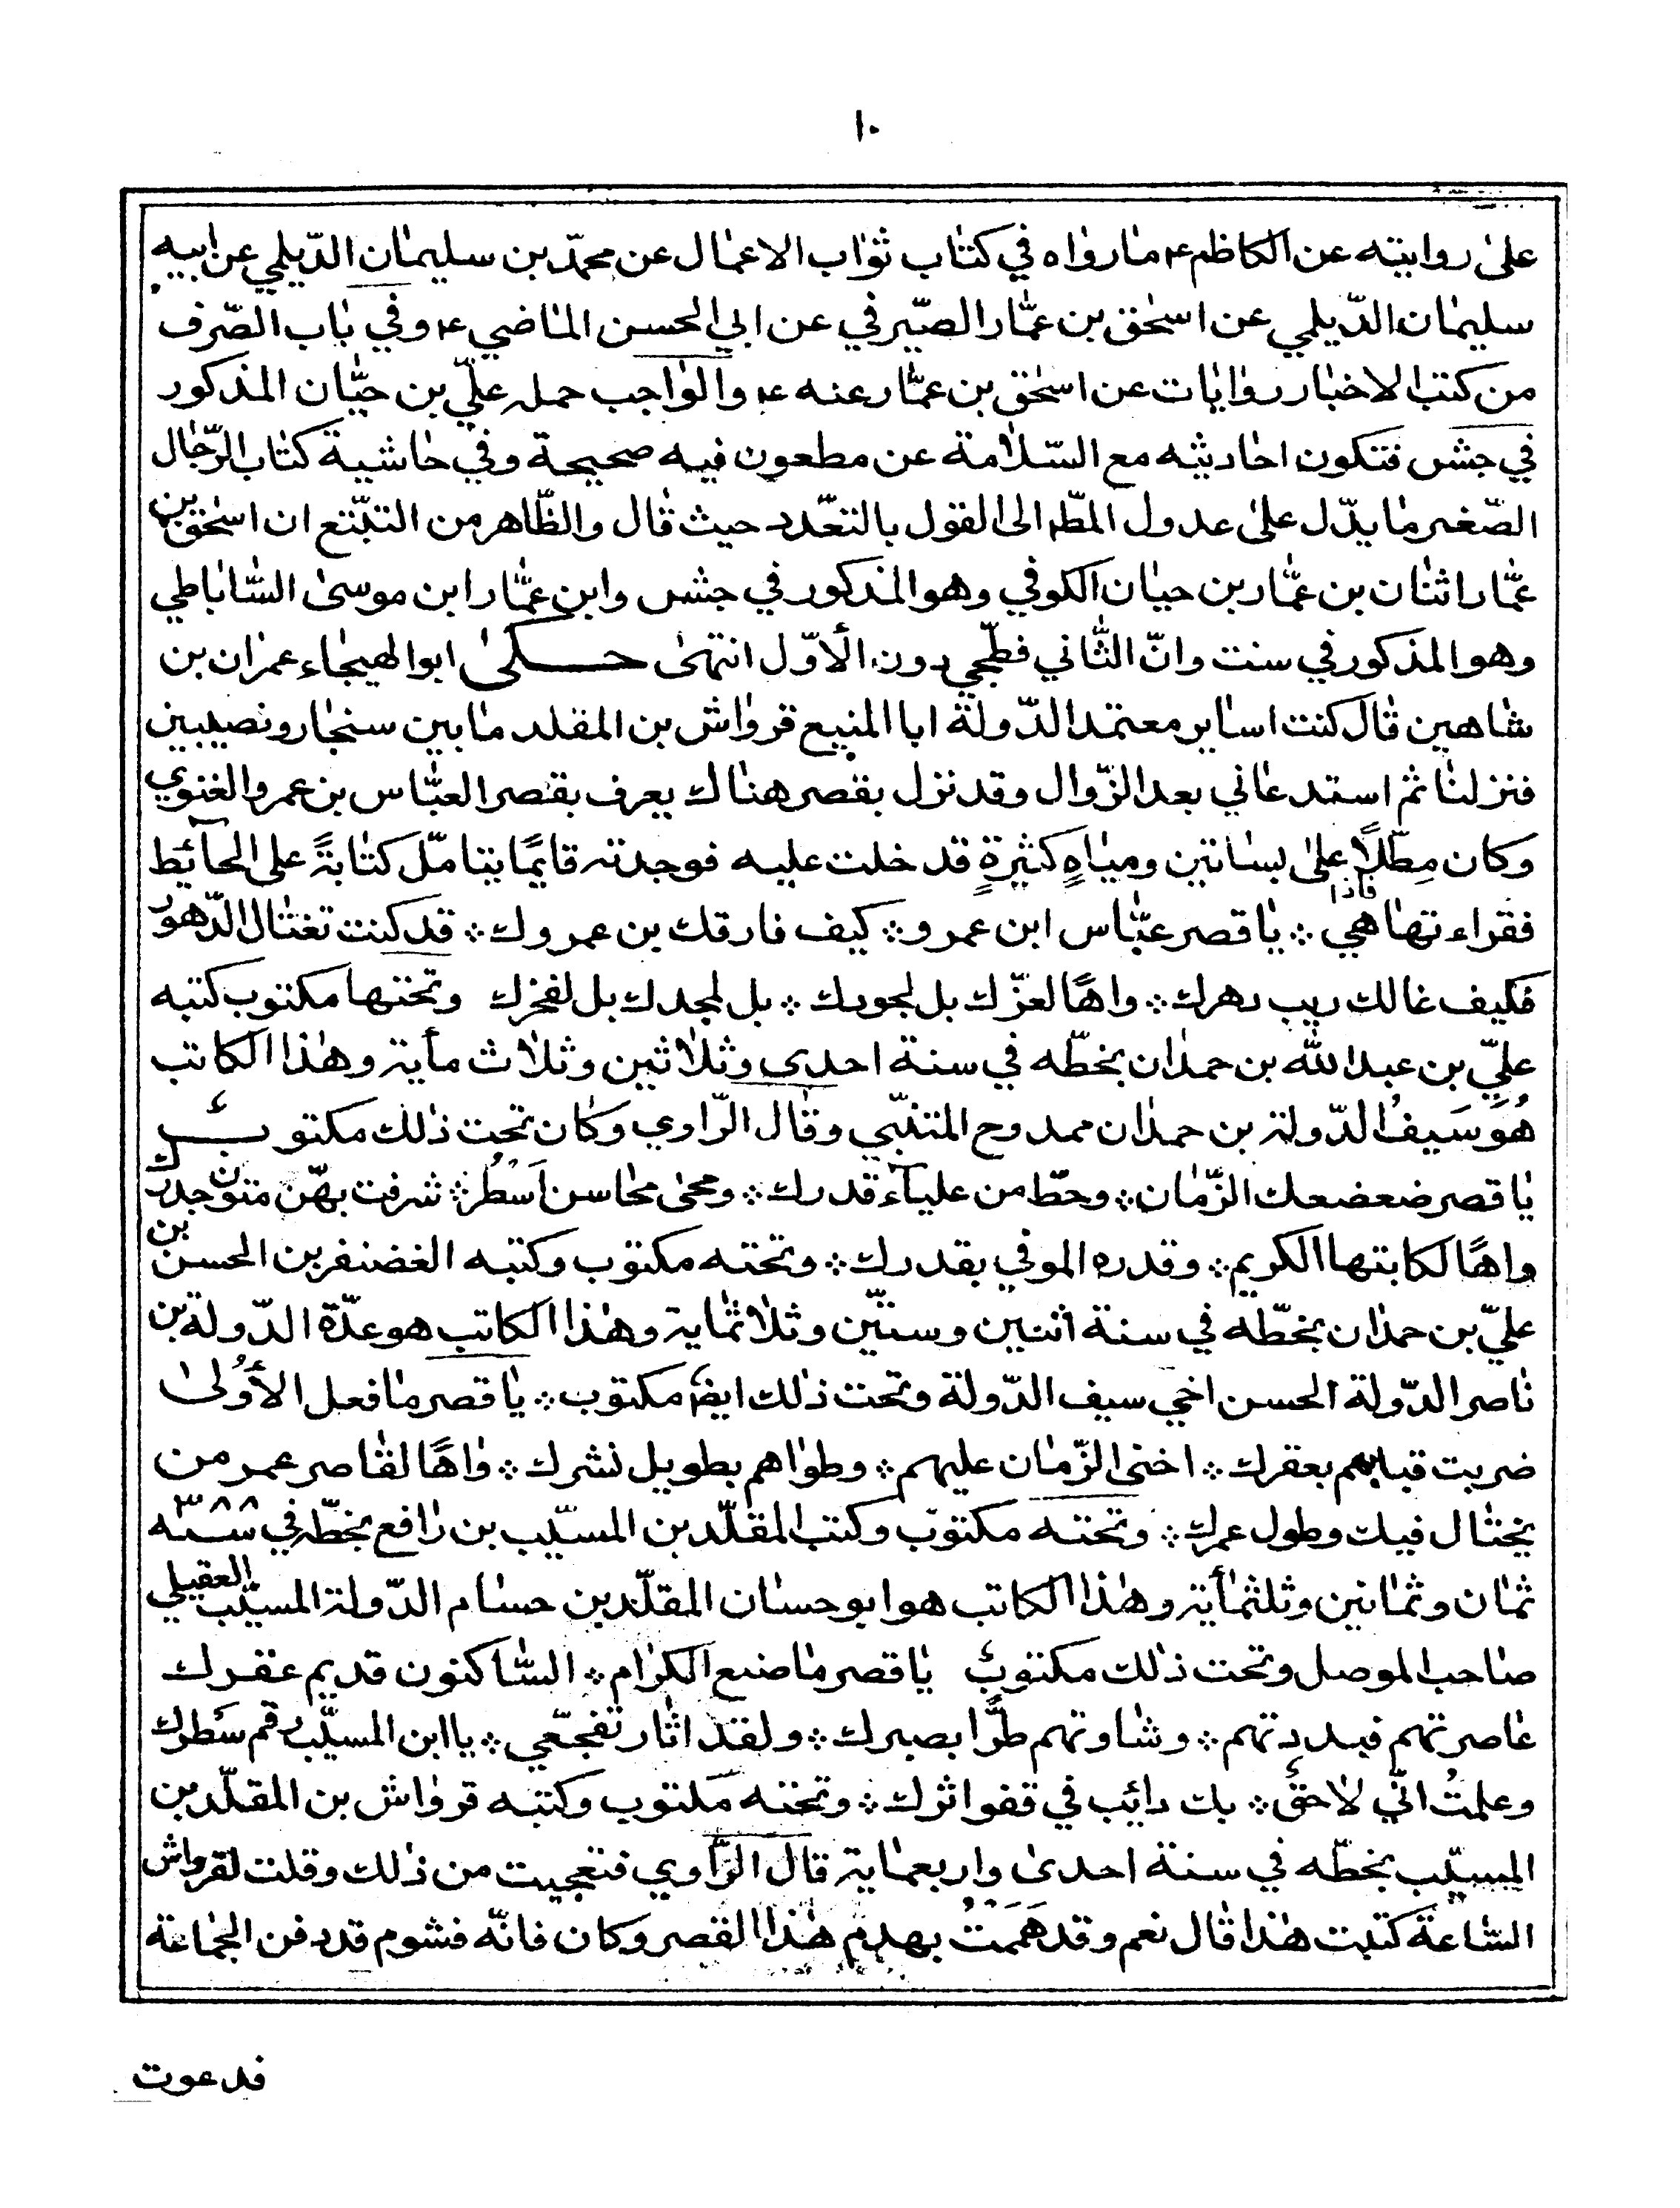 ١٠
على روايته عن الكاظم ع مارواه في كتاب ثواب الاعمال عن محمّد بن سليمان الدّيلمي عن ابيه
سليمان الدّيلمي عن اسحق بن عمّار الصّيرفي عن ابي الحسن الماضي ع وفي باب الصّرف
من كتب الاخبار روايات عن اسحق بن عمّار عنه ع والواجب حمله علي بن حيّان المذكور
في جش فتكون احاديثه مع السّلامة عن مطعون فيه صحيحة وفي حاشية كتاب الرّجال
الصّغير ما يدّل على عدول المطّ الى القول بالتعّدد حيث قال والظّاهر من التتبّع ان اسحق بن
عمّار اثنان بن عمّار بن حيان الكوفي وهو المذكور في جش وابن عمّار ابن موسى السّاباطي
وهو المذكور في ست وانّ الثّاني فطّحي دون الأوّل انتهى حكى ابوالهيجاء عمران بن
شاهين قال كنت اساير معتمد الدّولة ابا المنيع قرواش بن المقلد مابين سنجار ونصيبين
فنزلنا ثم استدعاني بعد الزّوال وقد نزل بقصر هناك يعرف بقصر العبّاس بن عمرو الغنوي
وكان مطّلًا على بساتين ومياهٍ كثيرةٍ قد خلت عليه فوجدته قايمًا يتامّل كتابةً على الحآئط
فقراءتها فاذا هي ∴ يا قصر عبّاس ابن عمرو ∴ كيف فارقك بن عمروك ∴ قد كنت تغتال الدّهور
فكيف غالك ريب دهرك ∴ واهًا لعزّك بل لجودك ∴ بل لمجدك بل لفخرك وتحتها مكتوب كتبه
عليّ بن عبد الله بن حمدان بخطّه في سنة احدى وثلاثين وثلاث مأية وهذا الكاتب
هُوَ سَيفُ الدّولة بن حمدان ممدوح المتنبّي وقال الرّاوي وكان تحت ذلك مكتوب
يا قصر ضعضعك الزّمان ∴ وحطّ من عليآء قدرك ∴ ومحى محاسن اَسْطُرٍ ∴ شرفت بهّن متون جدرك
واهًا لكابتها الكريم ∴ وقدره الموفي بقدرك ∴ وتحته مكتوب وكتبه الغضنفر بن الحسن بن
عليّ بن حمدان بخطّه في سنة اثنين وستّين وثلاثماية وهذا الكاتب هو عدّة الدّولة بن
ناصر الدّولة الحسن اخي سيف الدّولة وتحت ذلك ايضً مكتوب ∴ يا قصر ما فعل الأُولى
ضربت قبابهم بعقرك ∴ اخنى الزّمان عليهم ∴ وطواهم بطويل نشرك ∴ واهًا لقاصر عمر من
يختال فيك وطول عمرك ∴ وتحته مكتوب وكتب المقلّد بن المسيّب بن رافع بخطّه في سنه ٣٨٨
ثمان وثمانين وثلثمأية وهذا الكاتب هو ابو حسان المقلّد بن حسام الدّولة المسيّب العقيلي
صاحب الموصل وتحت ذلك مكتوبٌ يا قصر ما صنع الكرام ∴ السّاكنون قديم عقرك
عاصرتهم فبددتهم ∴ وشاوتهم طرًّا بصبرك ∴ ولقد اثار تفجّعي ∴ يا ابن المسيّب رقم سَطرك
وعلمتُ انّي لاحقٌ ∴ بك دائب في قفو اثرك ∴ وتحته مكتوب وكتبه قرواش بن المقلّد بن
المسيّب بخطّه في سنة احدى واربعماية قال الرّاوي فتعجبت من ذلك وقلت لقرواش
السّاعة كتبت هذا قال نعم وقد هَمَمتُ بهدم هذا القصر وكان فانّه فشوم قد دفن الجماعة
فدعوت